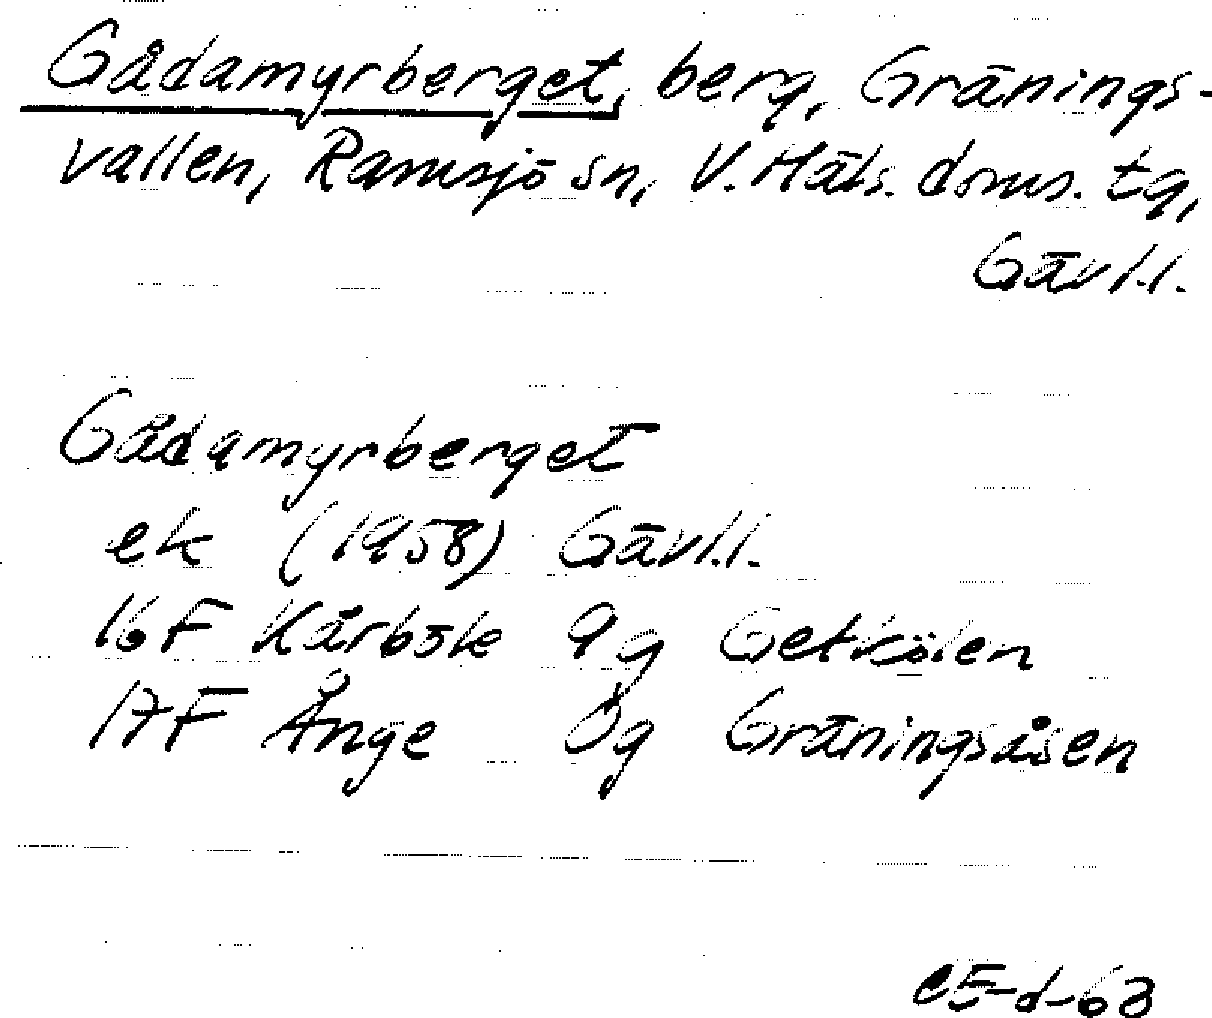 Gådamyrberget, berg, Gränings-
vallen, Ramsjö sn, V. Häls. doms. tg,
Gävl.l.
Gådamyrberget
ek (1958) Gävl.l.
16F Kårböle 9g Getkölen
17F Ånge 0g Gräningsåsen